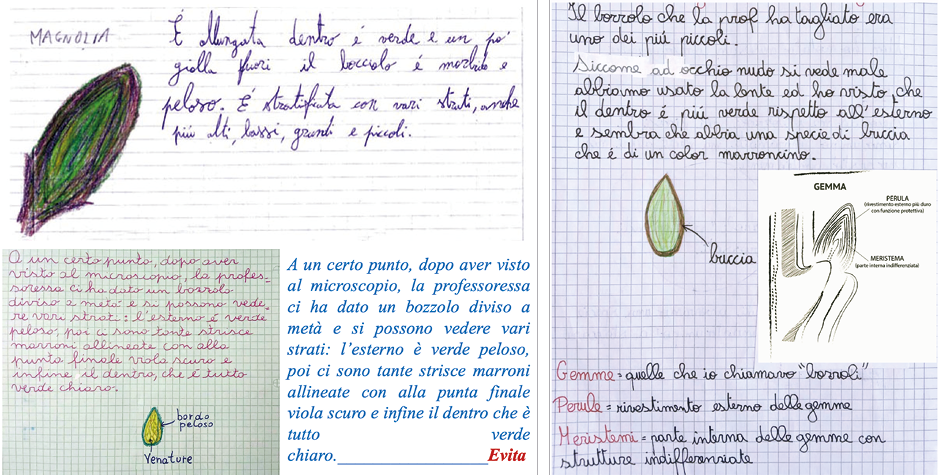 MAGNOLIA
É allungata dentro é verde e un po'
gialla fuori il bocciolo é morbido e
peloso. E' stratificata con vari strati, anche
più alti, bassi, grandi e piccoli.
A un certo punto, dopo aver
visto al microscopio, la profes-
soressa ci ha dato un bozzolo
diviso a metá e si possono vede-
re vari strati: l'esterno é verde
peloso, poi ci sono tante strisce
marroni allineate con alla
punta finale viola scuro e
infine il dentro, che é tutto
verde chiaro.
bordo
peloso
Venature
A un certo punto, dopo aver visto
al microscopio, la professoressa
ci ha dato un bozzolo diviso a
metà e si possono vedere vari
strati: l'esterno è verde peloso,
poi ci sono tante strisce marroni
allineate con alla punta finale
viola scuro e infine il dentro che è
tutto verde
chiaro. Evita
Il bozzolo che la prof ha tagliato era
uno dei piú piccoli.
Siccome ad occhio nudo si vede male
abbiamo usato la lente ed ho visto che
il dentro é piú verde rispetto all'esterno
e sembra che abbia una specie di buccia
che é di un color marroncino.
buccia
GEMMA
PERULA
(rivestimento esterno più duro
con funzione protettiva)
MERISTEMA
(parte interna indifferenziata)
Gemme = quelle che io chiamavo "bozzoli"
Perule = rivestimento esterno delle gemme
Meristemi = parte interna delle gemme con
strutture indifferenziate